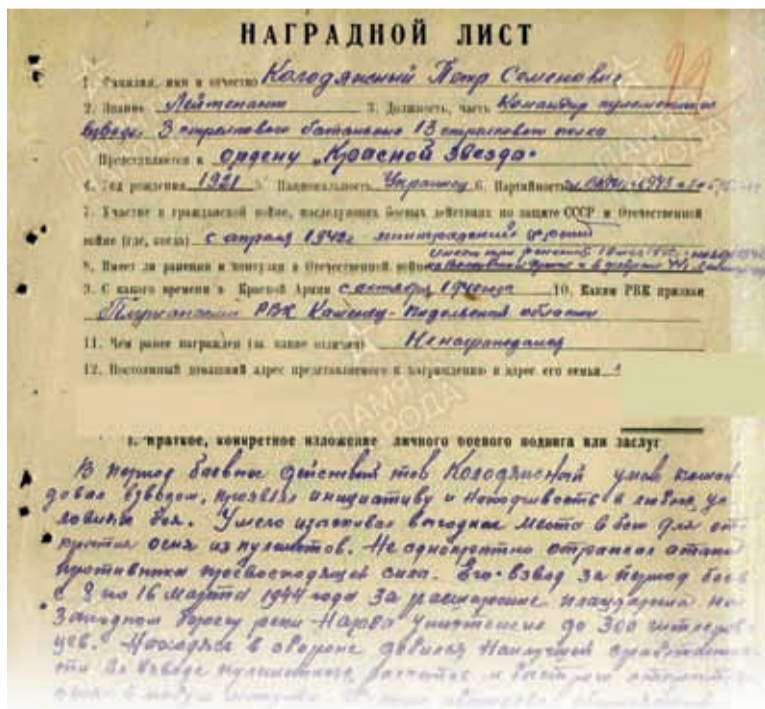 НАГРАДНОЙ ЛИСТ
99
1. Фамилия, имя и отчество Колодяжный Петр Семенович
2. Звание Лейтенант 3. Должность, часть Командир пулеметного
взвода 3 стрелкового батальона 13 стрелкового полка
Представляется к ордену „Красной Звезда"
4. Год рождения 1921 5. Национальность Украинец 6. Партийность
7. Участие в гражданской войне, последующих боевых действиях по защите СССР и Отечественной
войне (где, когда) с апреля 1942г Ленинградский фронт
8. Имеет ли ранения и контузии в Отечественной войне
9. С какого времени в Красной Армии с октября 1940 года 10. Каким РВК призван
РВК Каменец-Подольской области
11. Чем ранее награжден (за какие отличия) Ненагражедался
12. Постоянный домашний адрес представляемого к награждению и адрес его семьи
ПАМЯТЬ НАРОДА
I. Краткое, конкретное изложение личного боевого подвига или заслуг
В период боевых действий тов Колодяжный умело коман-
довал взводом, проявлял инициативу и находчивость в любых ус-
ловиях боя. Умело изыскивал выгодные места в бою для от-
крытия огня из пулеметов. Не однократно отражал атаки
противника превосходящей силы. Его взвод за период боев
с 8 по 16 марта 1944 года за расширение плацдарма на
Западном берегу реки Нарва уничтожил до 300 гитлеров-
цев. Находясь в обороне добился наилучшей
во взводе пулеметных расчетов и